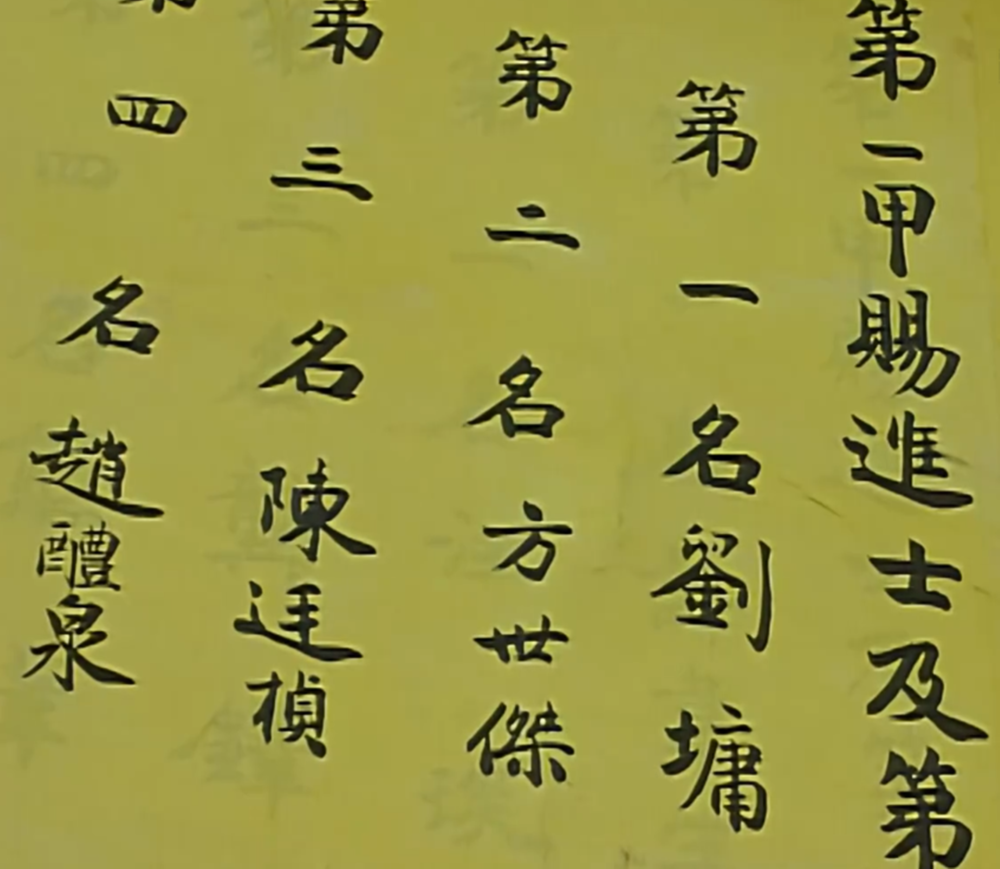 第一甲賜進士及第
第一名劉墉
第二名方世傑
第三名陳迋楨
第四名趙醴泉